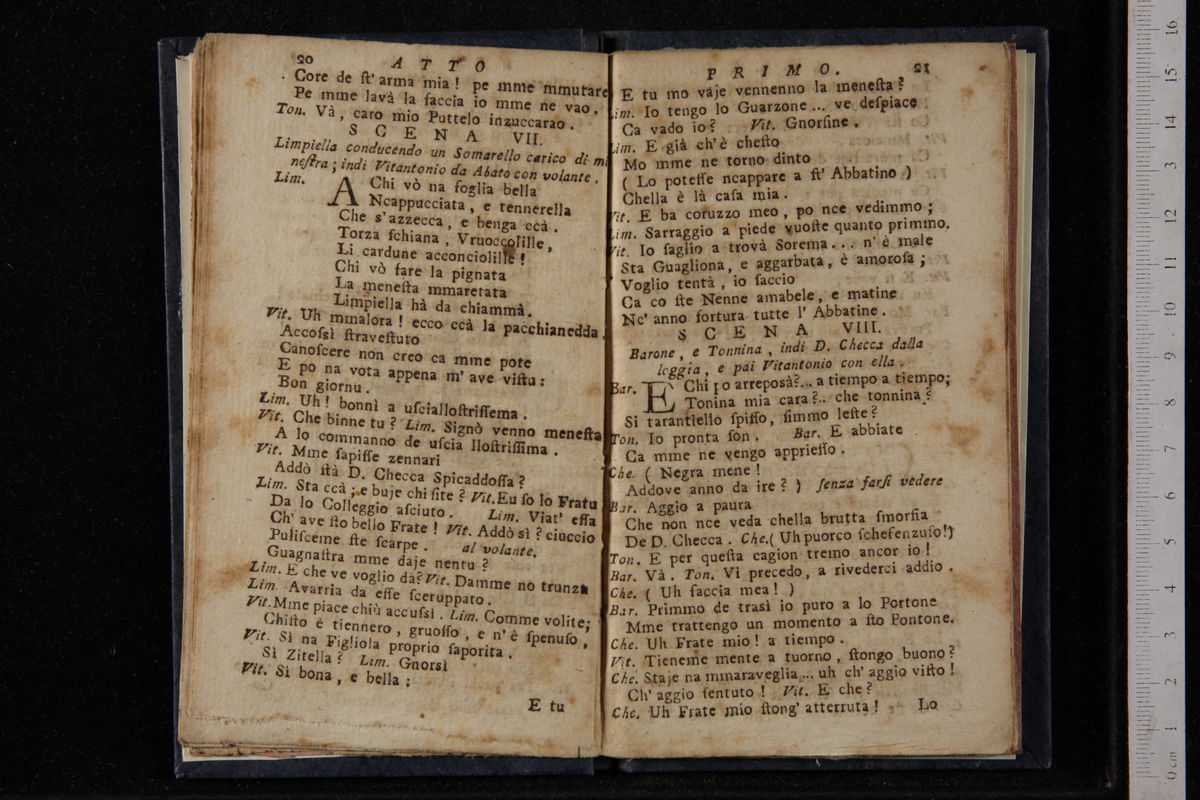 20 ATTO
Core de ſt' arma mia! pe mme mmutare
Pe mme lavà la faccia io mme ne vao.
Ton. Và, caro mio Puttelo inzuccarao.
SCENA VII.
Limpiella conducendo un Somarello carico di mi
neſtra; indi Vitantonio da Abato con volante.
Lim. A Chi vò na foglia bella
Ncappucciata, e tennerella
Che s'azzecca, e benga ccà.
Torza ſchiana, Vruoccolille,
Li cardune acconciolille!
Chi vò fare la pignata
La meneſta mmaretata
Limpiella hà da chiammà.
Vit. Uh mmalora! ecco ccà la pacchianedda
Accoſsì ſtraveſtuto
Canoſcere non creo ca mme pote
E po na vota appena m'ave viſtu:
Bon giornu.
Lim. Uh! bonnì a uſcialloſtriſſema.
Vit. Che binne tu? Lim. Signò venno meneſta
A lo commanno de uſcia lloſtriſſima.
Vit. Mme ſapiſſe zennari
Addò ſtà D. Checca Spicaddoſſa?
Lim. Sta ccà; e buje chi ſite? Vit. Eu ſo lo Fratu
Da lo Colleggio aſciuto. Lim. Viat' eſſa
Ch' ave ſto bello Frate! Vit. Addò sì? ciuccio
Puliſceme ſte ſcarpe. al volante.
Guagnaſtra mme daje nentu?
Lim. E che ve voglio dà? Vit. Damme no trunzu
Lim. Avarria da eſſe ſceruppato.
Vit. Mme piace chiù accuſsì. Lim. Comme volite;
Chiſto è tiennero, gruoſſo, e n'è ſpenuſo,
Vit. Sì na Figliola proprio ſaporita.
Sì Zitella? Lim. Gnorsì
Vit. Sì bona, e bella:
E tu
PRIMO. 21
E tu mo vaje vennenno la meneſta?
Lim. Io tengo lo Guarzone... ve deſpiace
Ca vado io? Vit. Gnorſine.
Lim. E già ch'è cheſto
Mo mme ne torno dinto
( Lo poteſſe ncappare a ſt' Abbatino )
Chella è là caſa mia.
Vit. E ba coruzzo meo, po nce vedimmo;
Lim. Sarraggio a piede vuoſte quanto primmo.
Vit. Io ſaglio a trovà Sorema... n'è male
Sta Guagliona, e aggarbata, è amoroſa;
Voglio tentà, io faccio
Ca co ſte Nenne amabele, e matine
Nc' anno fortura tutte l' Abbatine.
SCENA VIII.
Barone, e Tonnina, indi D. Checca dalla
loggia, e pai Vitantonio con ella.
Bar. E Chi po arreposà?... a tiempo a tiempo;
Tonina mia cara?.. che tonnina?
Si tarantiello ſpiſſo, ſimmo leſte?
Ton. Io pronta ſon. Bar. E abbiate
Ca mme ne vengo apprieſſo.
Che. ( Negra mene!
Addove anno da ire? ) ſenza farſi vedere
Bar. Aggio a paura
Che non nce veda chella brutta ſmorfia
De D. Checca. Che. ( Uh puorco ſchefenzuſo! )
Ton. E per queſta cagion tremo ancor io!
Bar. Và. Ton. Vi precedo, a rivederci addio.
Che. ( Uh faccia mea! )
Bar. Primmo de trasì io puro a lo Portone
Mme trattengo un momento a ſto Pontone.
Che. Uh Frate mio! a tiempo.
Vit. Tieneme mente a tuorno, ſtongo buono?
Che. Staje na mmaraveglia... uh ch' aggio viſto!
Ch' aggio ſentuto! Vit. E che?
Che. Uh Frate mio ſtong' atterruta!
Lo
0 cm 1 2 3 4 5 6 7 8 9 10 11 12 13 14 15 16